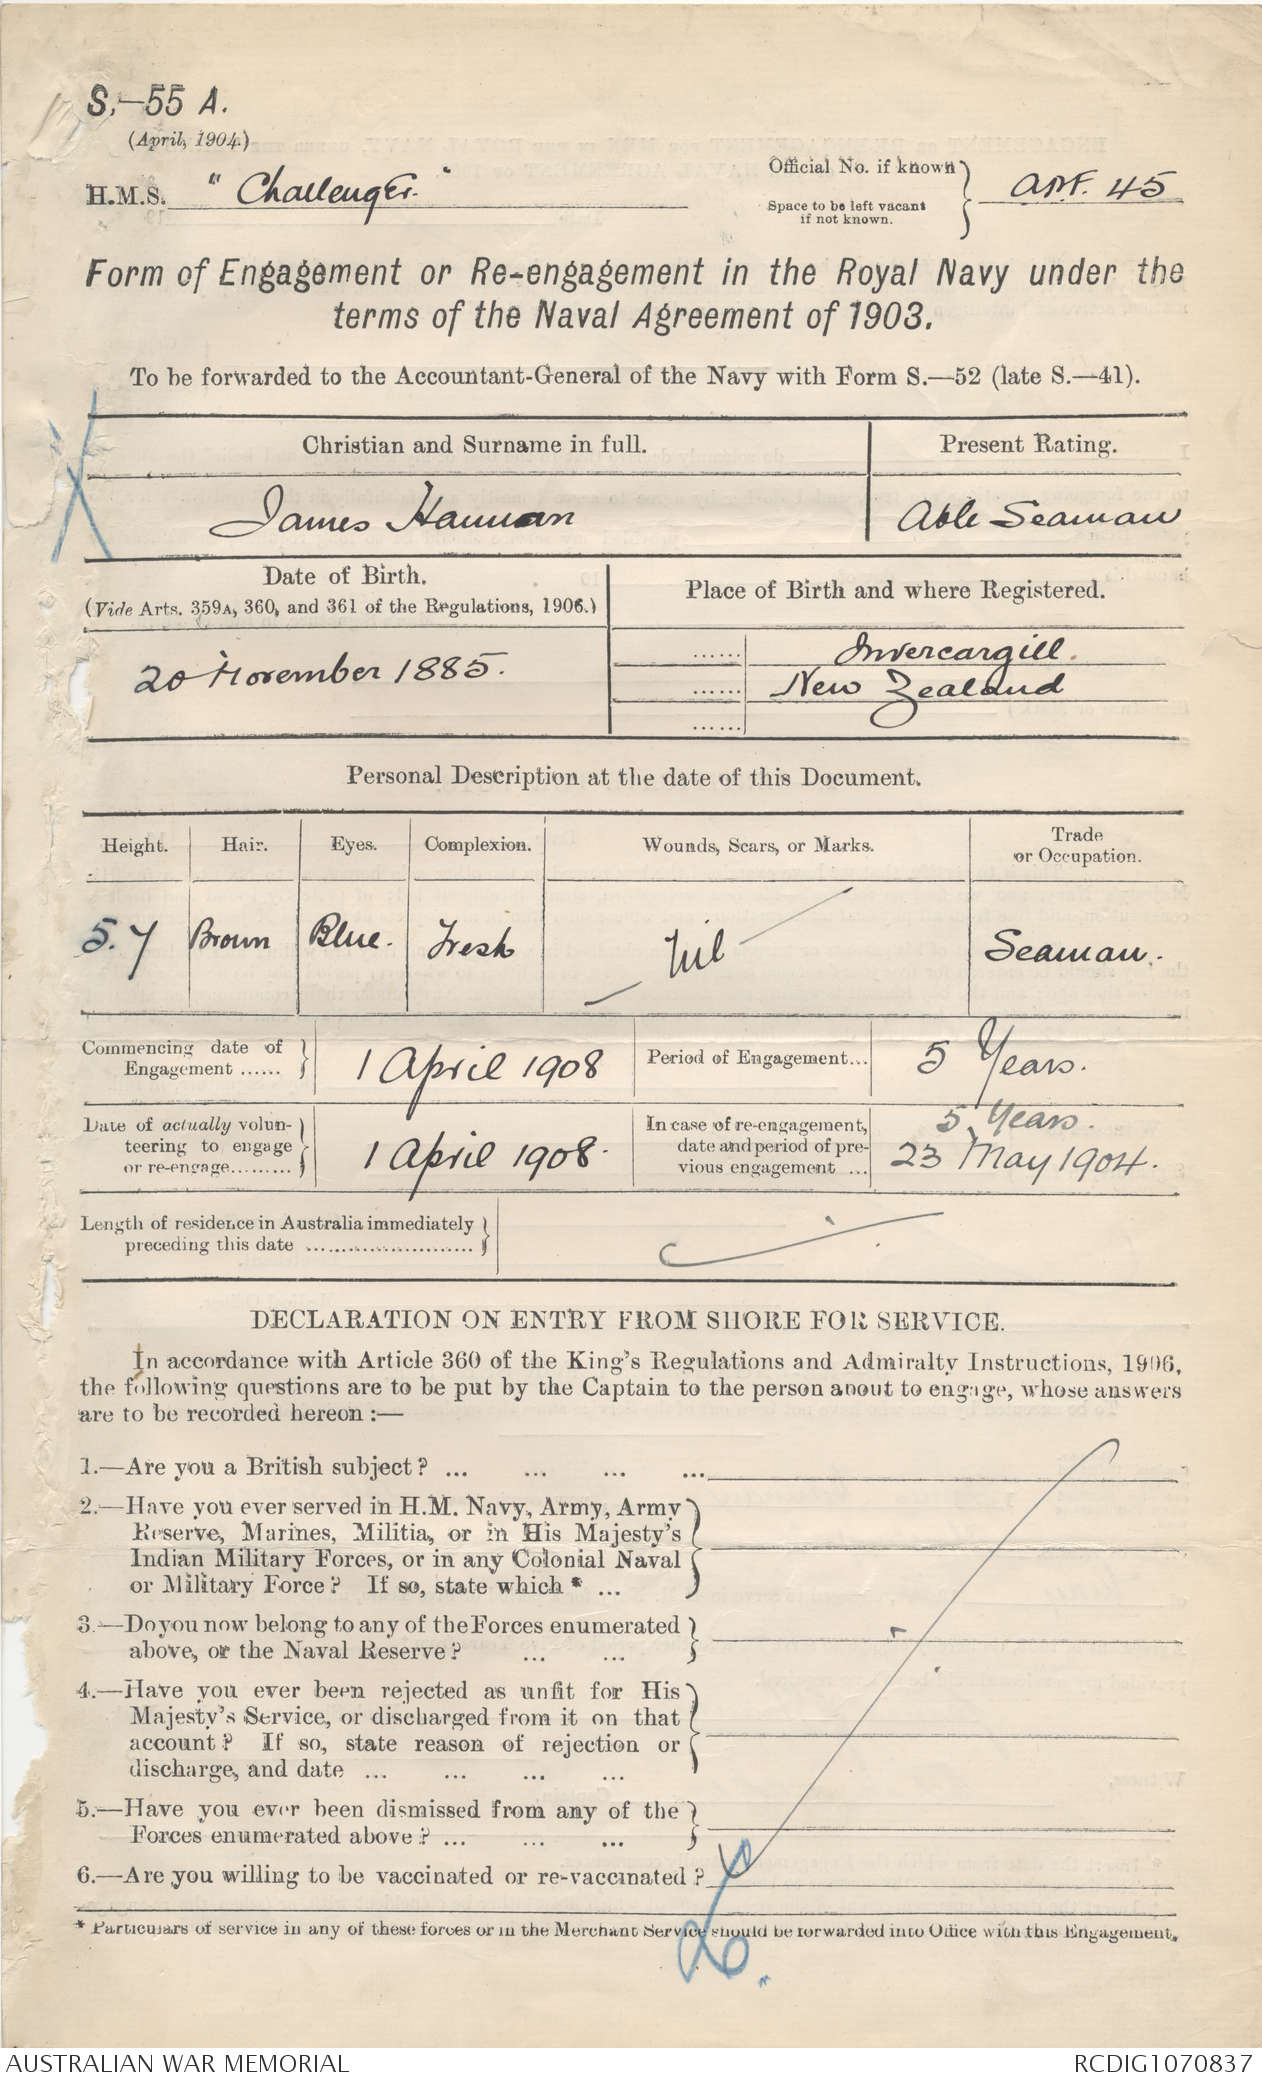 S.—55 A.
(April, 1904.)
H.M.S. "Challenger."
Official No. if known
Space to be left vacant
if not known.
45
Form of Engagement or Re-engagement in the Royal Navy under the
terms of the Naval Agreement of 1903.
To be forwarded to the Accountant-General of the Navy with Form S.—52 (late S.—41).
Christian and Surname in full.
Present Rating.
James Hannan
Able Seaman
Date of Birth.
(Vide Arts. 359A, 360, and 361 of the Regulations, 1906.)
Place of Birth and where Registered.
20 November 1885.
...... Invercargill.
...... New Zealand
......
Personal Description at the date of this Document.
Height.
Hair.
Eyes.
Complexion.
Wounds, Scars, or Marks.
Trade
or Occupation.
5.7
Brown
Blue.
Fresh
Nil
Seaman.
Commencing date of
Engagement ......
1 April 1908
Period of Engagement...
5 Years.
Date of actually volun-
teering to engage
or re-engage.........
1 April 1908.
In case of re-engagement,
date and period of pre-
vious engagement ...
5 Years.
23 May 1904.
Length of residence in Australia immediately
preceding this date ........................
DECLARATION ON ENTRY FROM SHORE FOR SERVICE.
In accordance with Article 360 of the King's Regulations and Admiralty Instructions, 1906,
the following questions are to be put by the Captain to the person about to engage, whose answers
are to be recorded hereon :—
1.—Are you a British subject? ... ... ... ...
2.—Have you ever served in H.M. Navy, Army, Army
Reserve, Marines, Militia, or in His Majesty's
Indian Military Forces, or in any Colonial Naval
or Military Force? If so, state which * ...
3.—Do you now belong to any of the Forces enumerated
above, or the Naval Reserve? ... ...
4.—Have you ever been rejected as unfit for His
Majesty's Service, or discharged from it on that
account? If so, state reason of rejection or
discharge, and date ... ... ... ...
5.—Have you ever been dismissed from any of the
Forces enumerated above? ... ... ...
6.—Are you willing to be vaccinated or re-vaccinated?
* Particulars of service in any of these forces or in the Merchant Service should be forwarded into Office with this Engagement.
AUSTRALIAN WAR MEMORIAL
RCDIG1070837